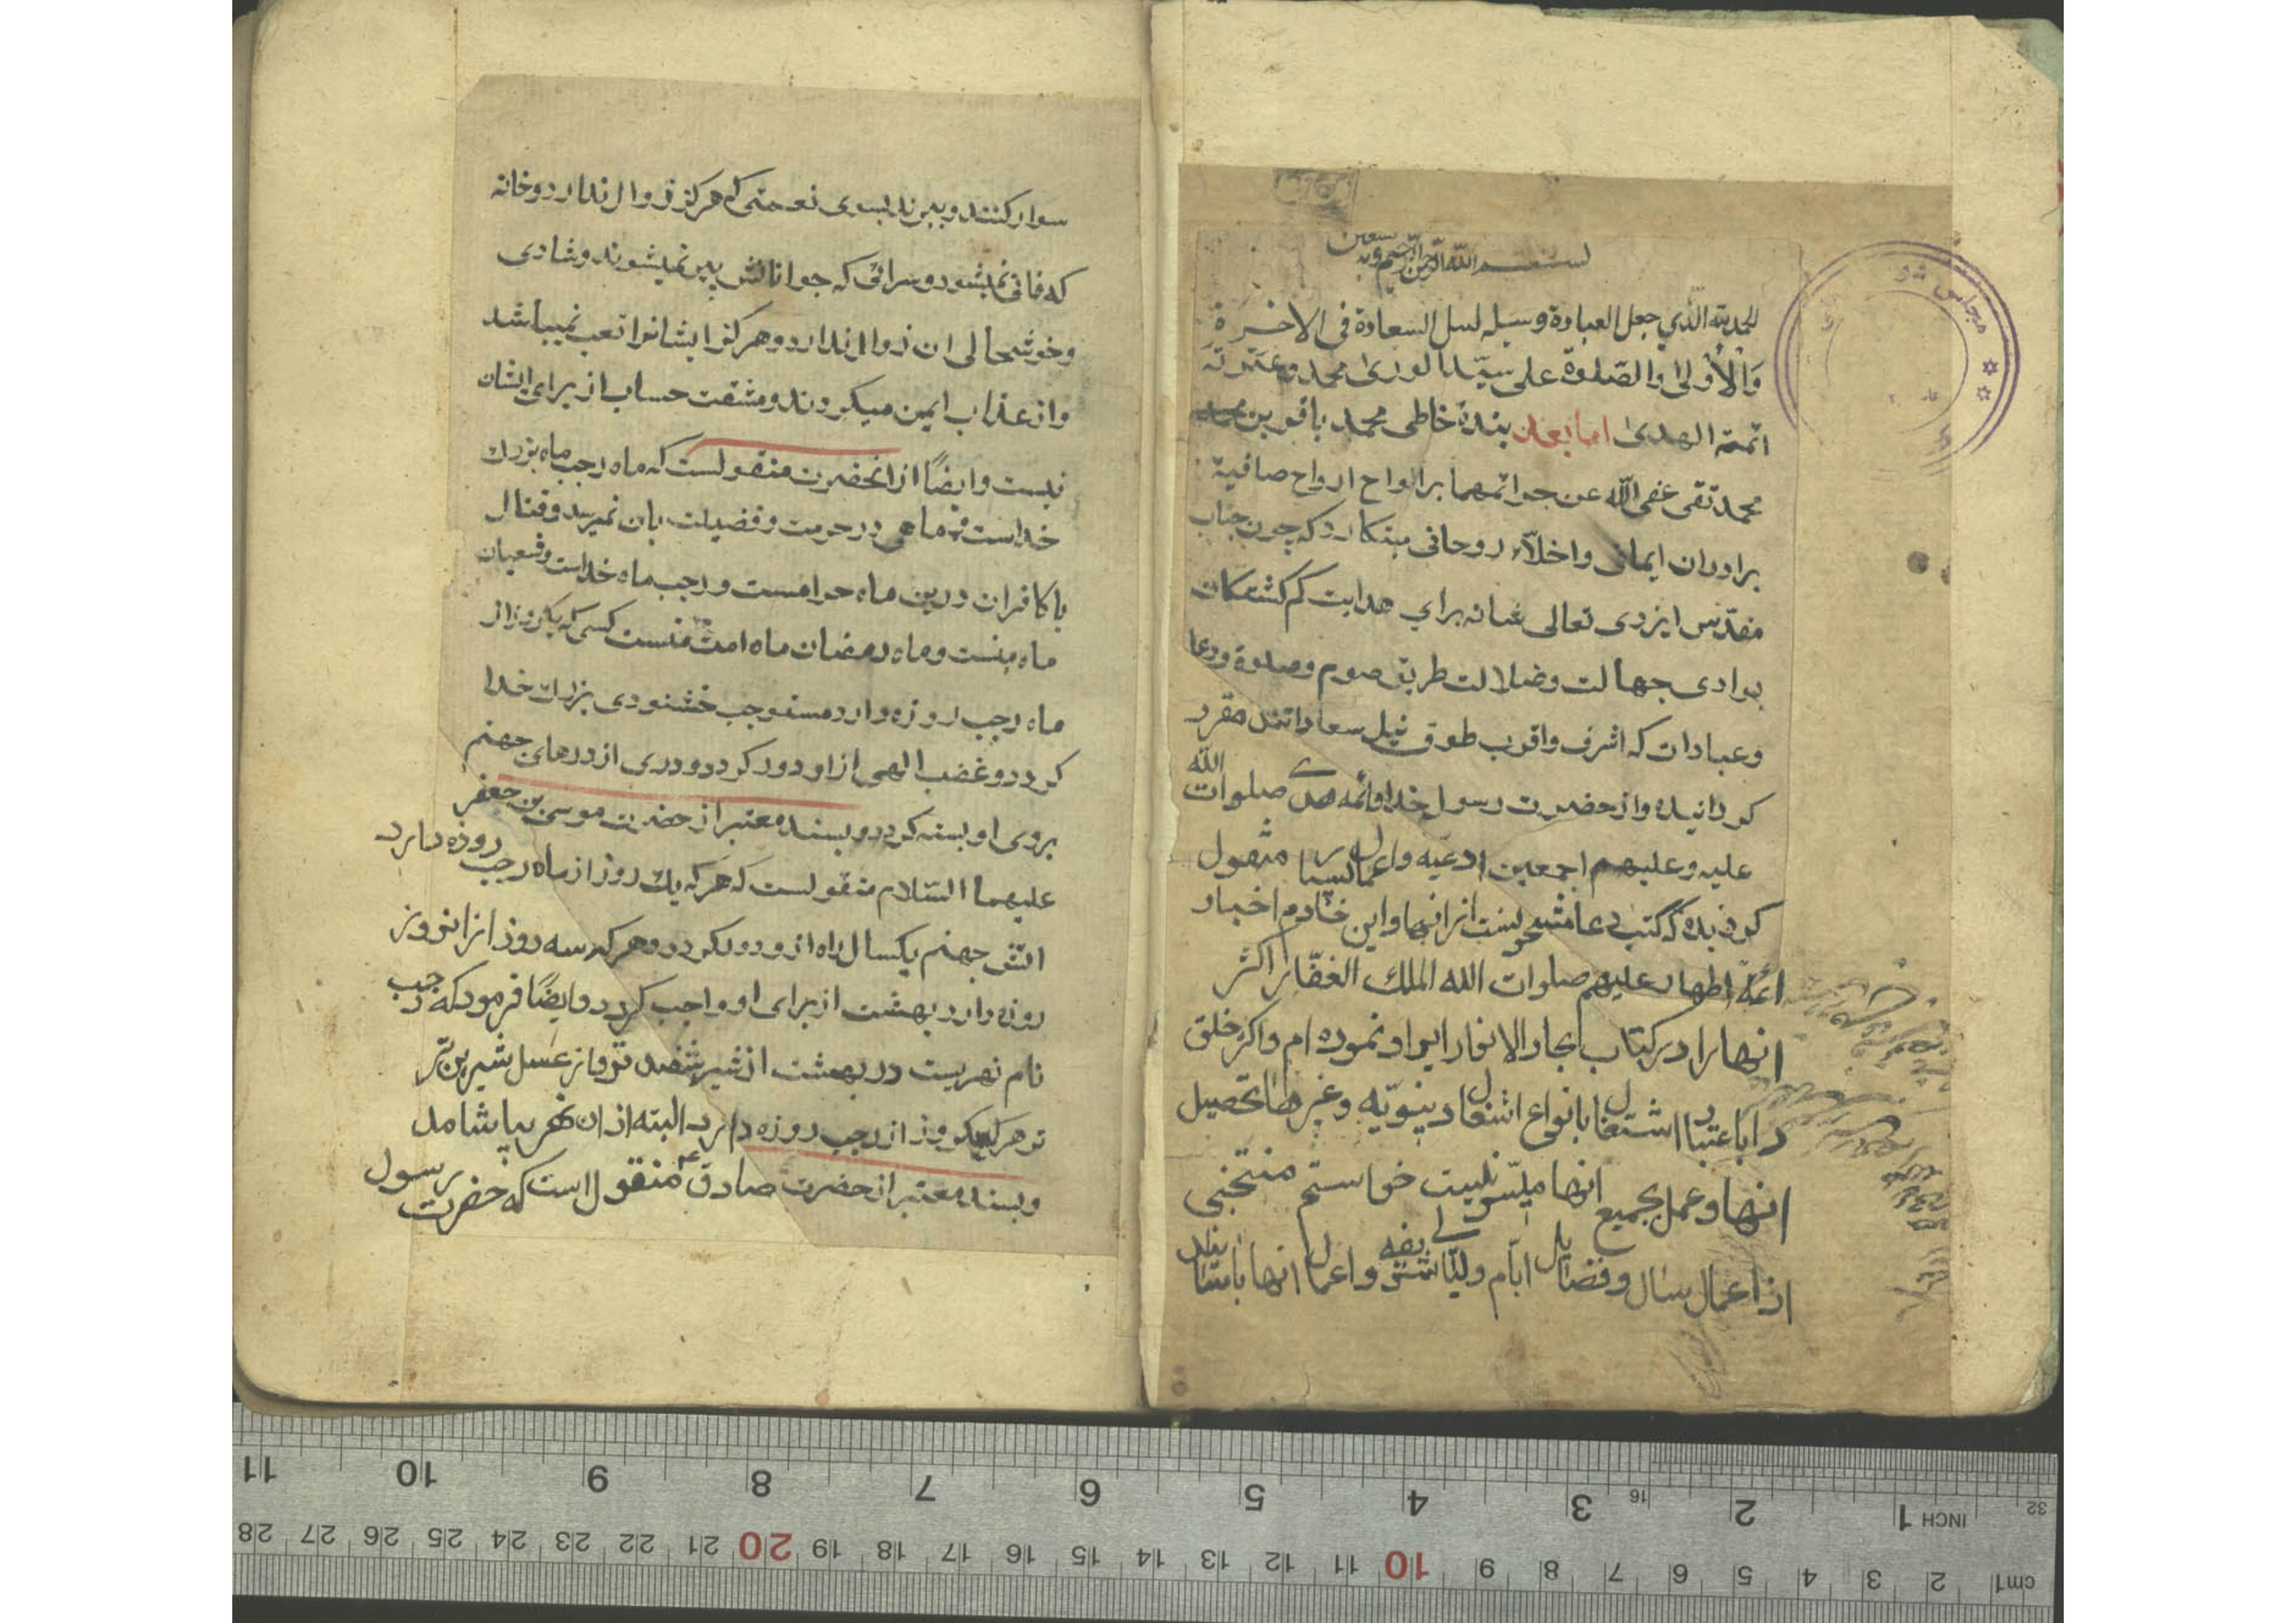 بسم الله الرحمن الرحیم وبه نستعین
الحمدلله الذي جعل العبادة وسیله لنیل السعادة فی الاخرة
وَالْأُولیٰ والصّلوة علی سیّد الوریٰ محمد وعترته
ائمة الهدیٰ امابعد بندهٔ خاطی محمد باقر بن محمد
محمد تقی عفی الله عن جرائمهما بر الواح ارواح صافیة
برادران ایمانی واخلّاء روحانی مینکارد که چون جناب
مقدّس ایزدی تعالی شانه برای هدایت کم کشتکان
بوادی جهالت وضلالت طریق صوم وصلوة ودعا
وعبادات که اشرف واقرب طرق نیل سعاداتند مقرر
کردانیده واز حضرت رسول خدا وائمه هدی صلوات الله
علیه وعلیهم اجمعین ادعیه واعمال بسیار منقول
کردیده که کتب دعا مشحونست از انها واین خادم اخبار
ائمهٔ اطهار علیهم صلوات الله الملك الغفّار اکثر
انها را در کتاب بحار الانوار ایراد نموده ام واکثر خلق
را باعتبار اشتغال بانواع اشغال دینویّه وغیرها تحصیل
انها وعمل بجمیع انها میسّر نیست خواستم منتخبی
از اعمال سال وفضایل ایّام ولیالی شریفه واعمال انها باسانید
سوار کنند وببرند بسوی نعمتی که هرکز زوال ندارد وخانه
که فانی نمیشود وسرائی که جوانانش پیر نمیشوند وشادی
وخوشحالی ان زوال ندارد وهرکز ایشانرا تعب نمیباشد
واز عذاب ایمن میکردند ومشقت حساب از برای ایشان
نیست وایضًا از انحضرت منقولست که ماه رجب ماه بزرك
خداست و ماهی در حرمت وفضیلت بان نمیرسد وقتال
با کافران درین ماه حرامست ورجب ماه خداست وشعبان
ماه منست وماه رمضان ماه امت منست کسی که یکروز از
ماه رجب روزه دارد مستوجب خشنودی بزرك خدا
کردد وغضب الهی از او دور کردد ودری از درهای جهنم
بروی او بسته کردد وبسند معتبر از حضرت موسی بن جعفر
علیهما السّلام منقولست که هرکه یك روز از ماه رجب روزه دارد
اتش جهنم یکسال راه از او دور کردد وهرکه سه روز از ان روز
روزه دارد بهشت از برای او واجب کردد وایضًا فرمود که رجب
نام نهریست در بهشت از شیر سفید تر واز عسل شیرین تر
هرکه یکروز از رجب روزه دارد البته از ان نهر بیاشامد
وبسند معتبر از حضرت صادق ع منقول است که حضرت رسول